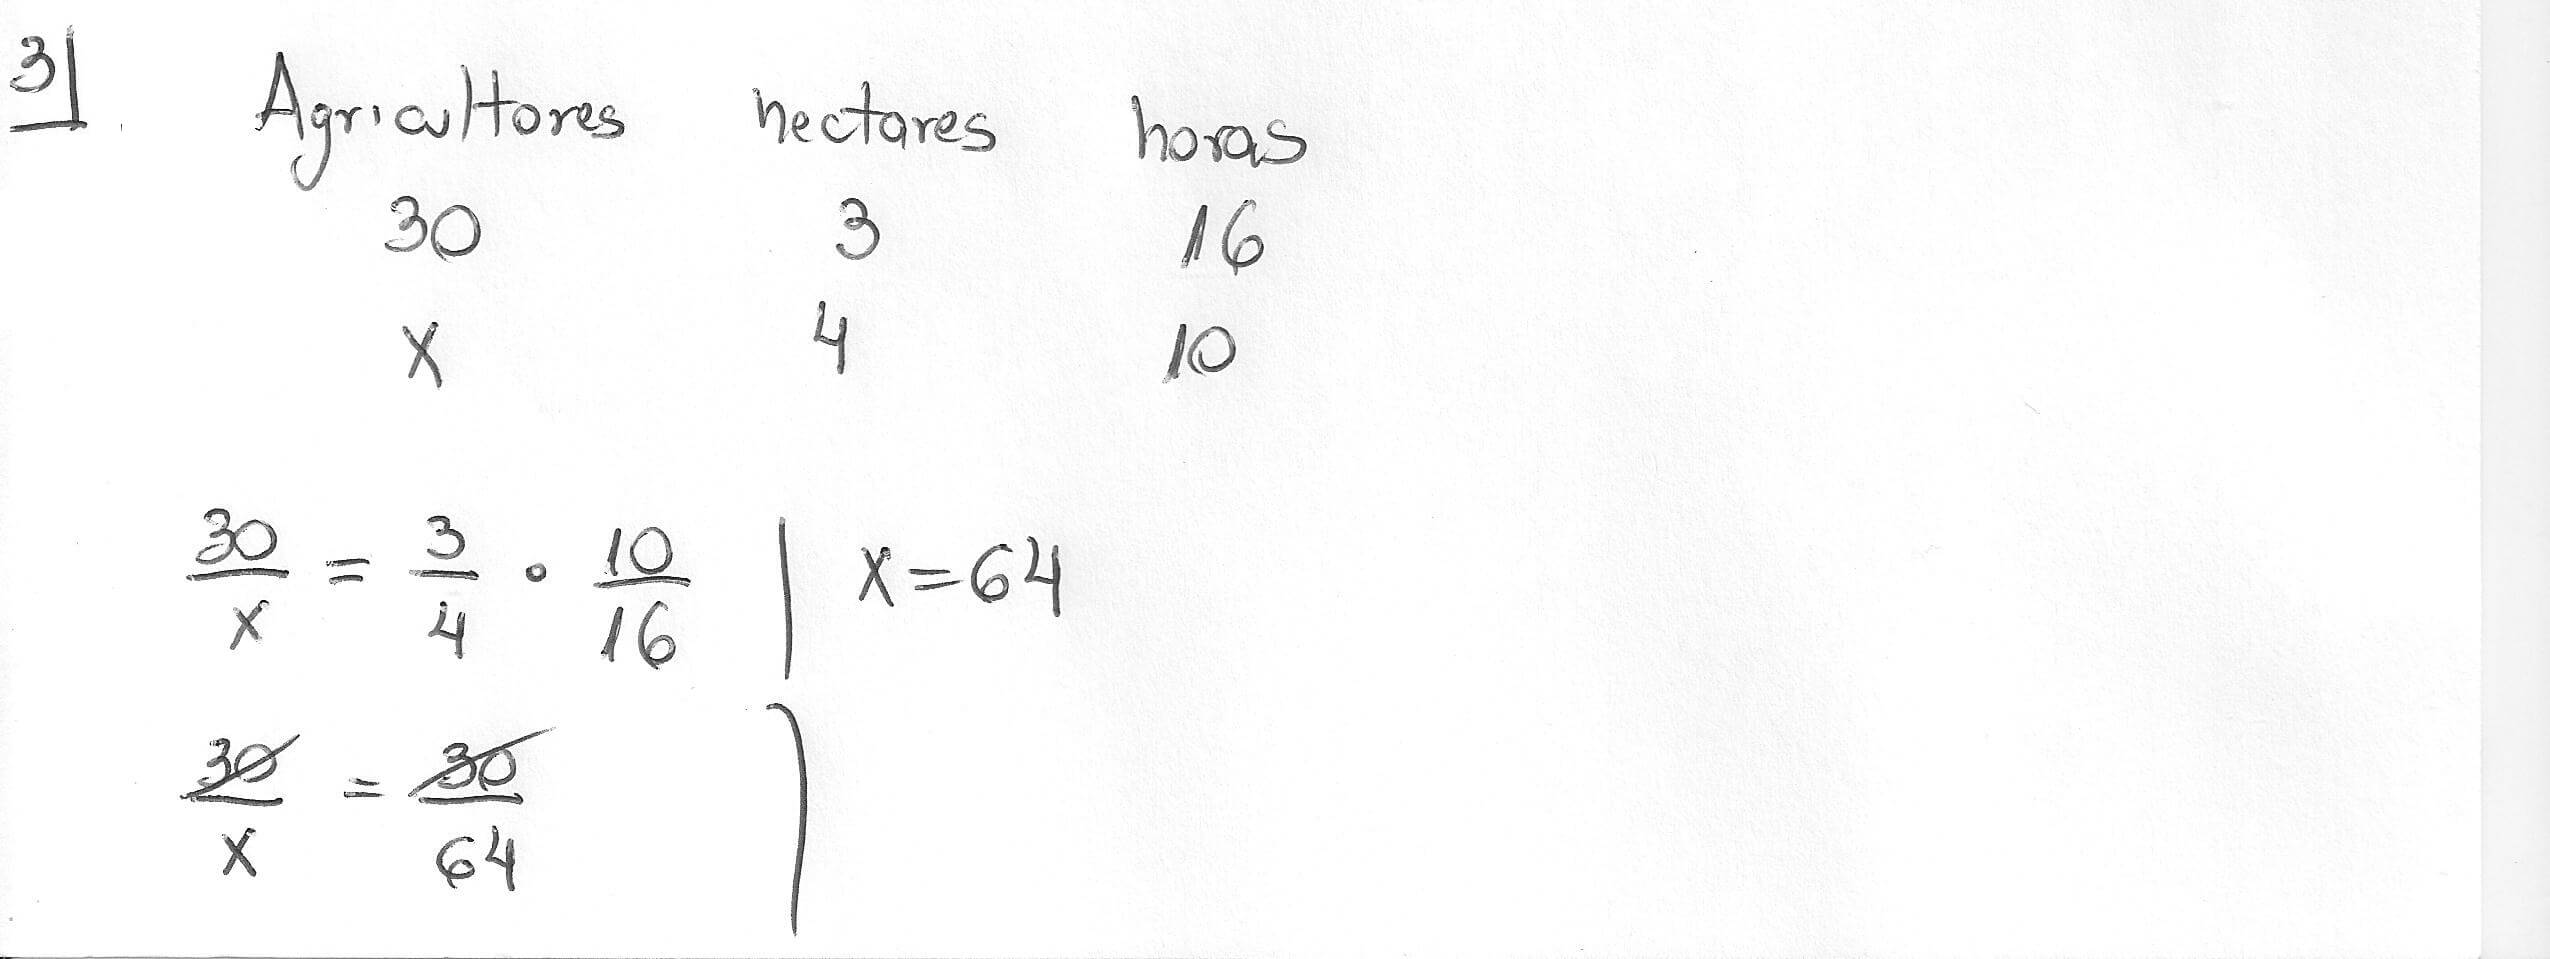 3] Agricultores hectares horas
30 3 16
X 4 10
30/x = 3/4 · 10/16 | x=64
30/x = 30/64